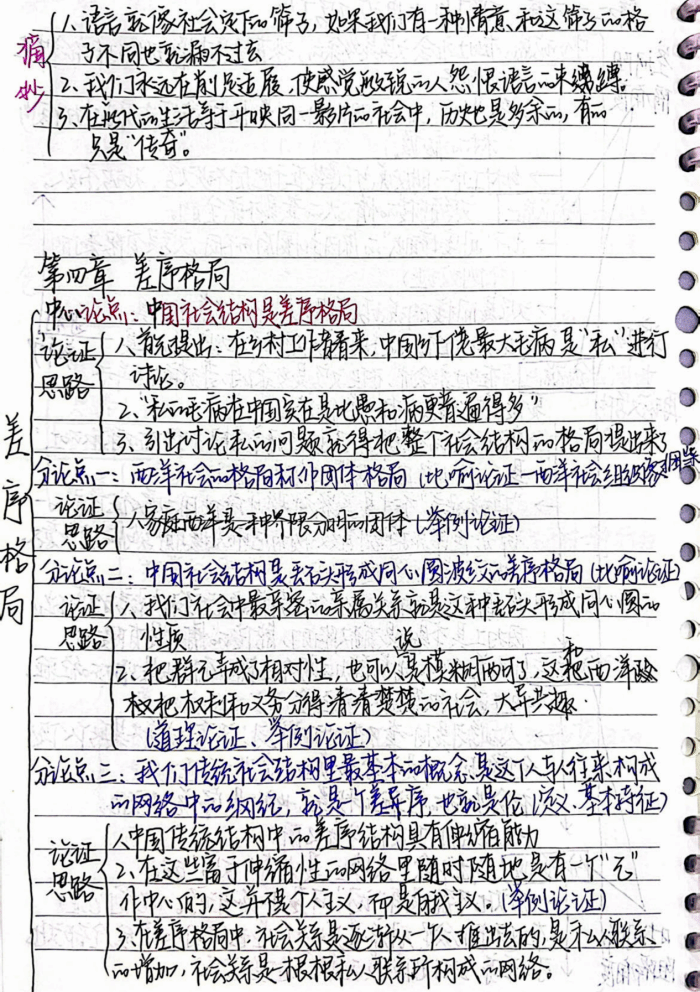 摘抄
1、语言就像社会定下的筛子，如果我们有一种情意、和这筛子的格
子不同也就漏不过去
2、我们永远在削足适履，使感觉敏锐的人怨恨语言的束缚。
3、在所代的生活等于开映同一影片的社会中，历史也是多余的，有的
只是“传奇”。
第四章 差序格局
中心论点：中国社会结构是差序格局
差序格局
论证思路
1、首先提出：在乡村工作者看来，中国乡下佬最大毛病是“私”进行
讨论。
2、“私的毛病在中国实在是比愚和病更普遍得多”
3、引出讨论私的问题就得把整个社会结构的格局提出来了
分论点一：西洋社会的格局称作团体格局（比喻论证—西洋社会组织像捆柴
论证思路
1、家庭西洋是一种界限分明的团体（举例论证）
分论点二：中国社会结构是丢石头形成同心圆波纹的差序格局（比喻论证）
论证思路
1、我们社会中最亲密的亲属关系就是这种丢石头形成同心圆的
性质
2、把群己弄成了相对性，也可以说是模糊两可了，这和把西洋
权把权利和义务分得清清楚楚的社会，大异其趣.
（道理论证、举例论证）
分论点三：我们传统社会结构里最基本的概念、是这个人与人往来构成
的网络中的纲纪，就是一个差序，也就是伦（含义、基本特征）
论证思路
1、中国传统结构中的差序结构具有伸缩能力
2、在这些富于伸缩性的网络里随时随地是有一个“己”
作中心的，这并不是个人主义，而是自我主义，（举例论证）
3、在差序格局中，社会关系是逐渐从一个人推出去的，是私人联系
的增加，社会关系是一根根私人联系所构成的网络。